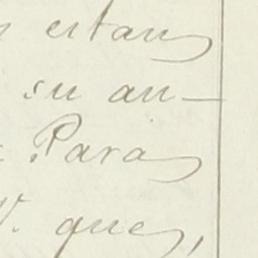 estan
su an-
Para
V. que,